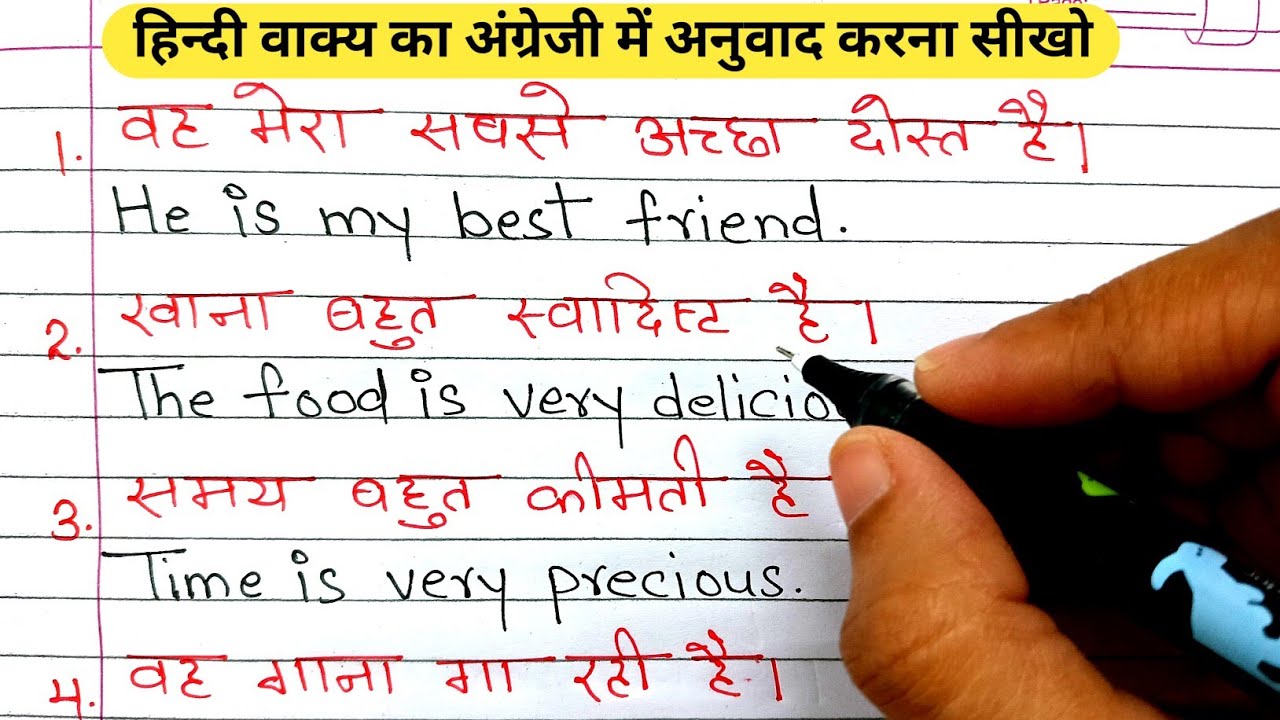 हिन्दी वाक्य का अंग्रेजी में अनुवाद करना सीखो
1. वह मेरा सबसे अच्छा दोस्त है।
He is my best friend.
2. खाना बहुत स्वादिष्ट है।
The food is very
3. समय बहुत कीमती है
Time is very precious.
4. वह गाना गा रही है।